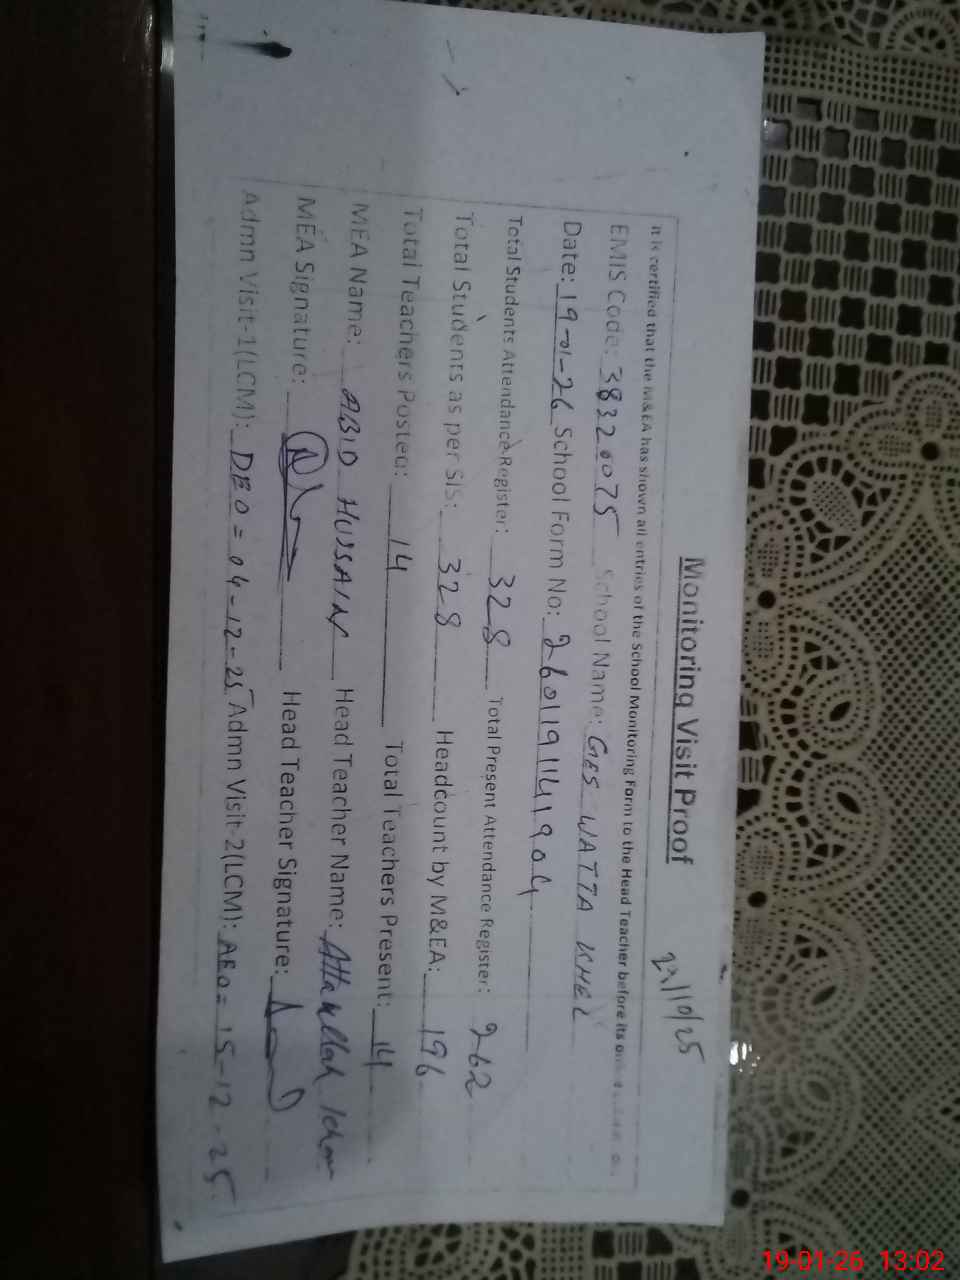 Monitoring Visit Proof
22/10/25
It is certified that the M&EA has shown all entries of the School Monitoring Form to the Head Teacher before its
EMIS Code: 38320075 School Name: GES WATTA KHEL
Date: 19-01-26 School Form No: 2601191141904
Total Students Attendance Register: 328 Total Present Attendance Register: 262
Total Students as per SIS: 328 Headcount by M&EA: 196
Total Teachers Posted: 14 Total Teachers Present: 14
MEA Name: ABID HUSSAIN Head Teacher Name: Attaullah Khan
MEA Signature: Head Teacher Signature:
Admn Visit-1(LCM): DEO = 04-12-25 Admn Visit-2(LCM): AEO = 15-12-25
19-01-26 13:02